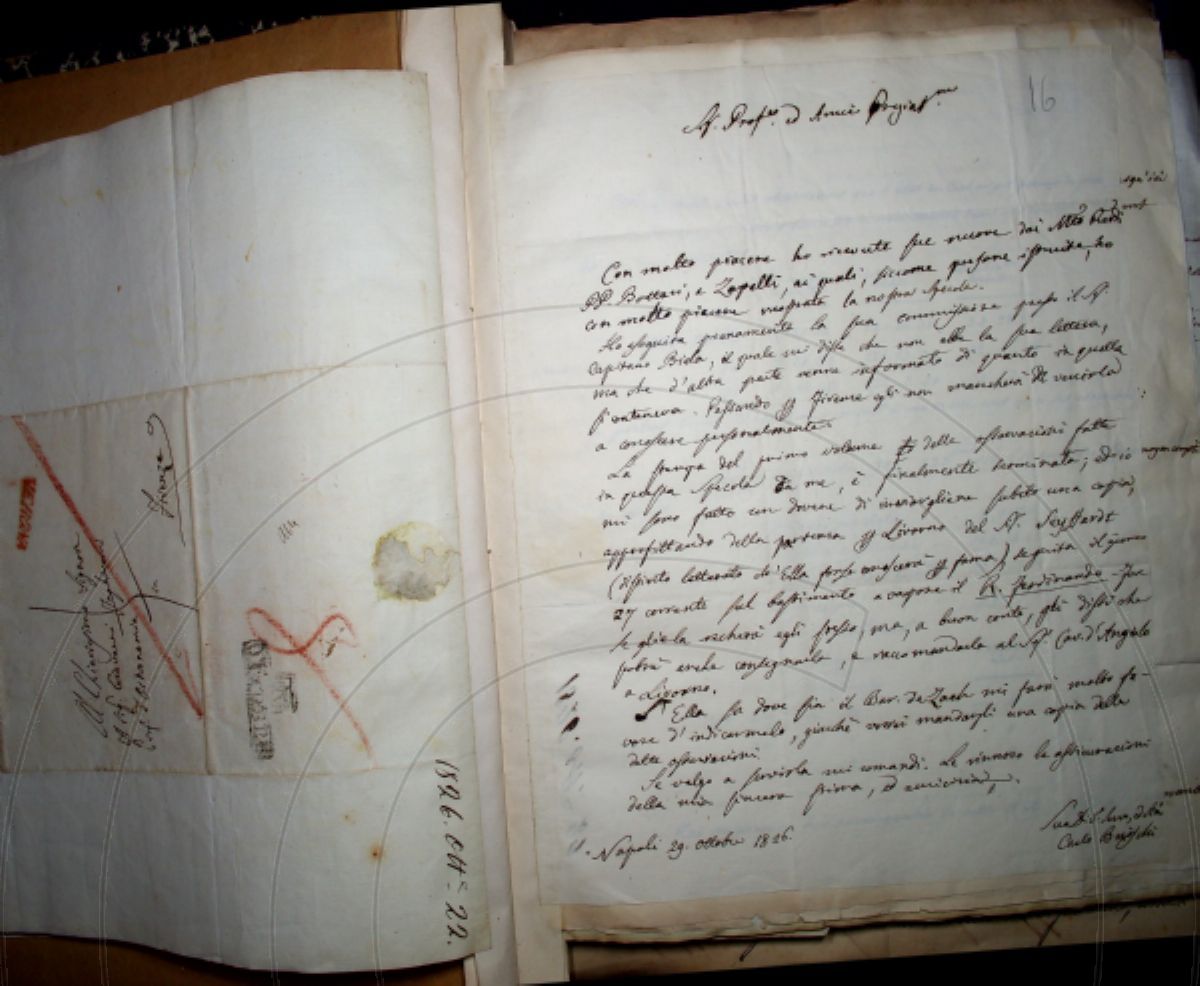 16
Sig. Prof.re ed Amico Pregiat.mo
Con molto piacere ho ricevute sue nuove dai Mto Rdi
PP. Bottari, e Zapelli, ai quali, siccome persone istruite, ho
con molto piacere mostrata la nostra Specola.
Ho eseguita pienamente la sua commissione presso il Sig.
Capitano Bida, il quale mi disse che non ebbe la sua lettera,
ma che d'altra parte venne informato di quanto in quella
si conteneva. Passando per Firenze egli non mancherà di venirla
a conoscere personalmente.
La stampa del primo volume delle osservazioni fatte
in questa Specola da me, è finalmente terminata; ed io
mi sono fatto un dovere di inviargliene subito una copia,
approfittando della partenza per Livorno del Sig. Seyffardt
(distinto letterato ch'Ella forse conoscerà per fama) seguita il giorno
27 corrente sul bastimento a vapore il R. Ferdinando. For
se gliela recherà egli stesso, ma, a buon conto, gli dissi che
potrà anche consegnarla, e raccomandarla al Sig. Cav. d'Angiolo
a Livorno.
Se Ella sa dove sia il Bar. de Zach mi farà molto fa-
vore d'indicarmelo, giacchè vorrei mandargli una copia delle
dette osservazioni.
Se valgo a servirla mi comandi. Le rinnovo le assicurazioni
della mia sincera stima, ed amicizia.
Napoli 29. Ottobre 1826.
Carlo Brioschi
Al Chiarissimo Signore
Prof. d'Astronomia
in
Firenze
1826. Ott = 22.